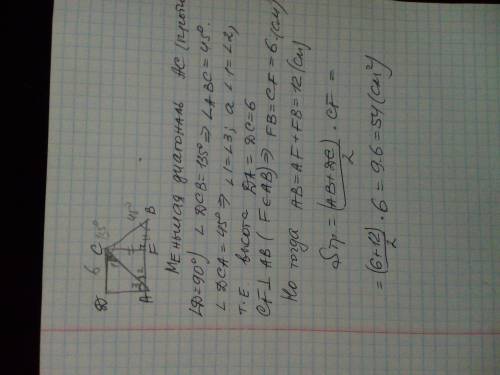 6
D
C
135°
45°
B
F
A
Меньшая диагональ AC (проти
∠D=90°) ∠DCB=135° ⇒ ∠ABC=45°.
∠DCA=45° ⇒ ∠1=∠3; а ∠1=∠2,
т.е высота DA=DC=6
CF⊥AB (F∈AB) ⇒ FB=CF=6 (см)
Но тогда AB=AF+FB=12 (см)
Sтр.=(AB+DC)/2 · CF =
=(6+12)/2 · 6=9·6=54 (см²)